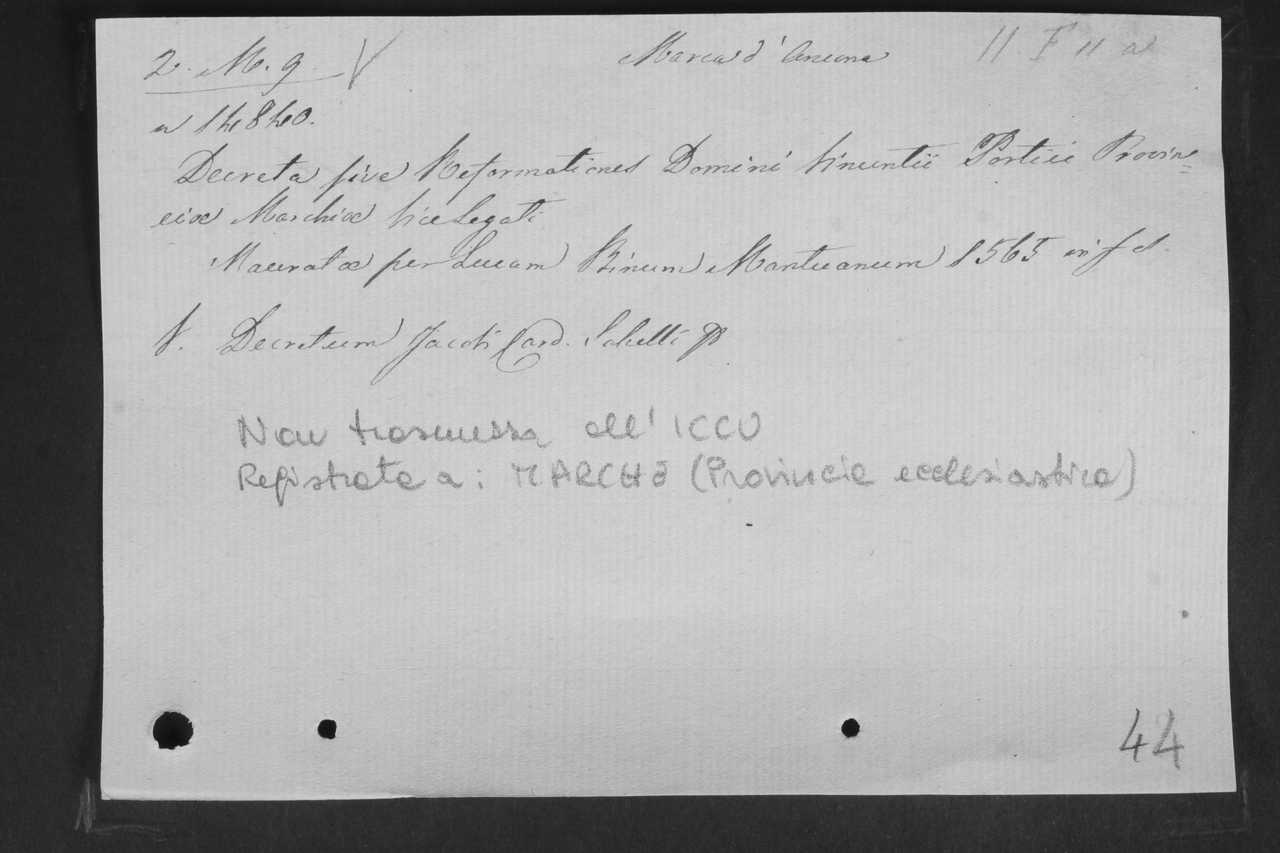 2. M. g. V
Marca d' Ancona
11 F 11 a
n 14840.
Decreta sive Reformationes Domini Vincentii Portici Provin=
ciæ Marchiæ Vicelegati
Maceratæ per Lucam Binum Mantuanum 1565 in f ct.
V. Decretum Jacobi Card. Sabelli
Non trasmessa all' ICCU
Registrata a: MARCHE (Provincia ecclesiastica)
44